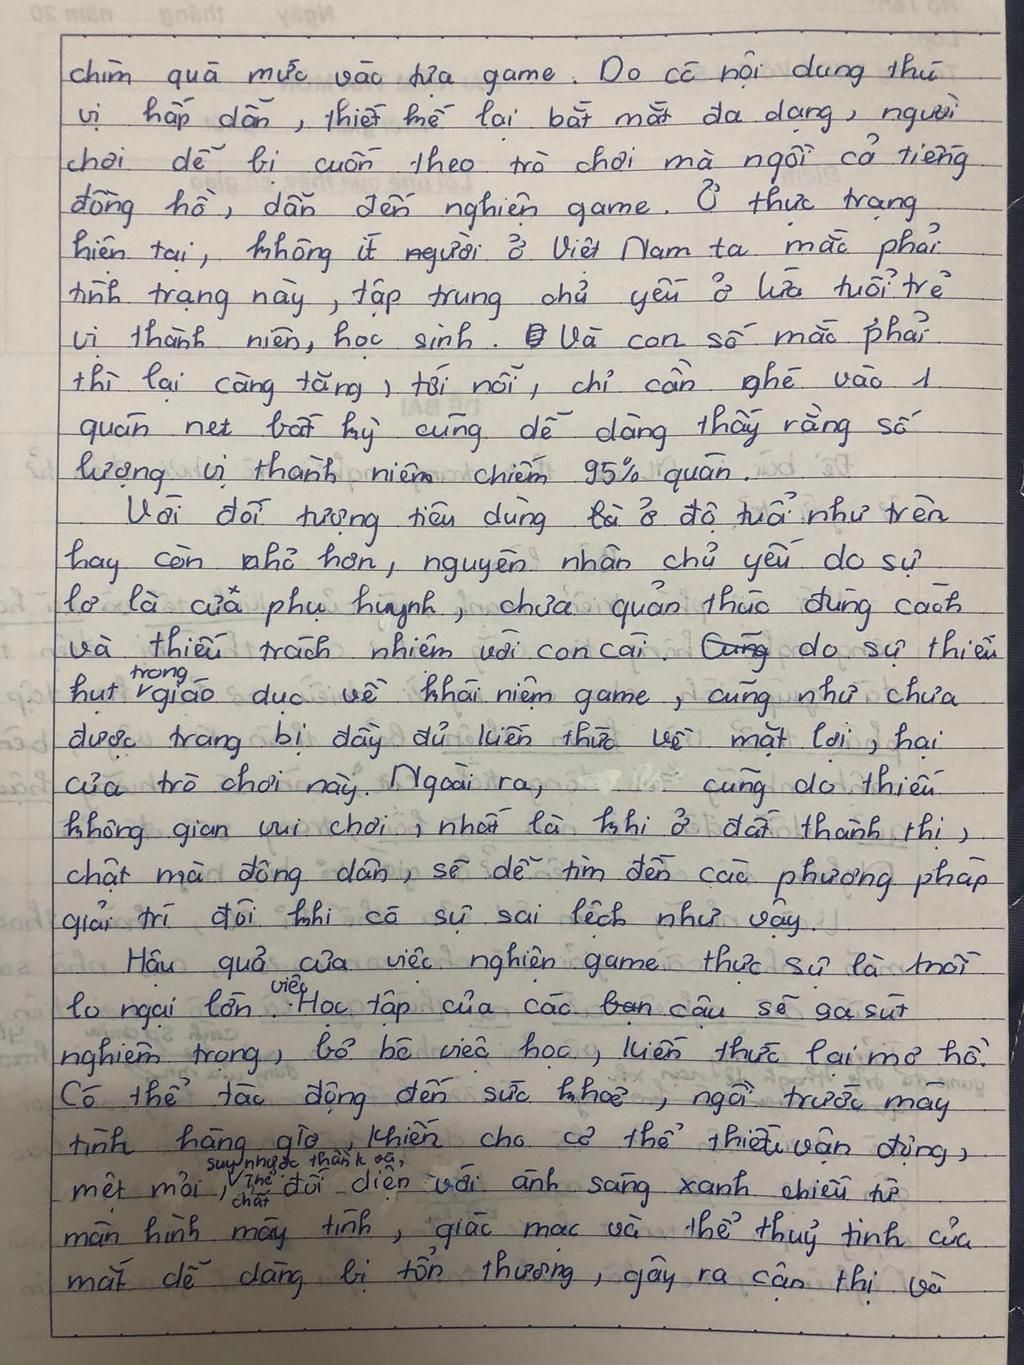 chìm quá mức vào tựa game. Do có nội dung thú
vị hấp dẫn, thiết kế lại bắt mắt đa dạng, người
chơi dễ bị cuốn theo trò chơi mà ngồi cả tiếng
đồng hồ, dẫn đến nghiện game. Ở thực trạng
hiện tại, không ít người ở Việt Nam ta mắc phải
tình trạng này, tập trung chủ yếu ở lứa tuổi trẻ
vị thành niên, học sinh. Và con số mắc phải
thì lại càng tăng, tới nỗi, chỉ cần ghé vào 1
quán net bất kỳ cũng dễ dàng thấy rằng số
lượng vị thành niêm chiếm 95% quán.
Với đối tượng tiêu dùng là ở độ tuổi như trên
hay còn nhỏ hơn, nguyên nhân chủ yếu do sự
lơ là của phụ huynh, chưa quản thúc đúng cách
và thiếu trách nhiệm với con cái. Cũng do sự thiếu
hụt trong giáo dục về khái niệm game, cũng như chưa
được trang bị đầy đủ kiến thức về mặt lợi, hại
của trò chơi này. Ngoài ra, cũng do thiếu
không gian vui chơi, nhất là khi ở đất thành thị,
chật mà đông dân, sẽ dễ tìm đến các phương pháp
giải trí đôi khi có sự sai lệch như vậy.
Hậu quả của việc nghiện game thực sự là mối
lo ngại lớn. việc Học tập của các bạn cậu sẽ sa sút
nghiêm trọng, bỏ bê việc học, kiến thức lại mơ hồ.
Có thể tác động đến sức khoẻ, ngồi trước máy
tính hàng giờ, khiến cho cơ thể thiếu vận động,
mệt mỏi, suy nhược thần k và, thể chất đối diện với ánh sáng xanh chiếu từ
màn hình máy tính, giác mạc và thể thuỷ tinh của
mắt dễ dàng bị tổn thương, gây ra cận thị và